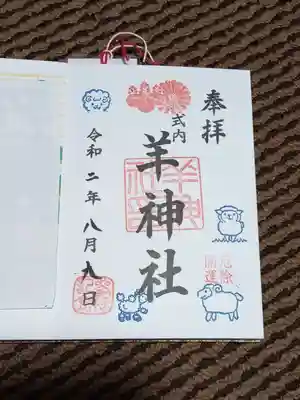 奉拝
式内
羊神社
厄除
開運
令和二年八月九日